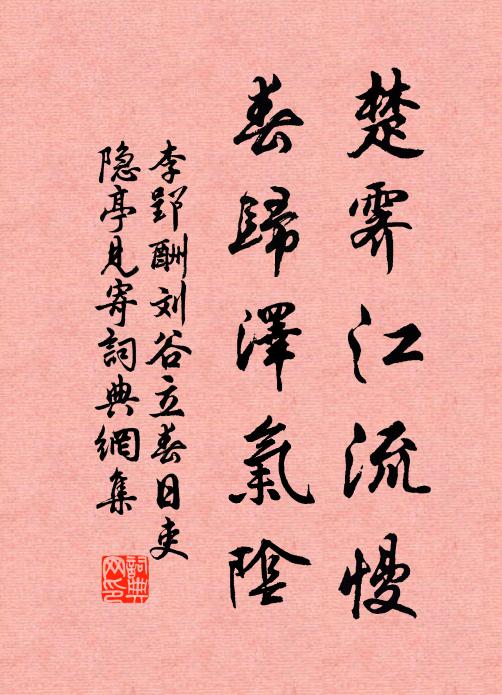 楚霁江流慢
春歸澤氣陰
李郢酬刘谷立春日吏
隐亭見寄詞典網集
詞典网印